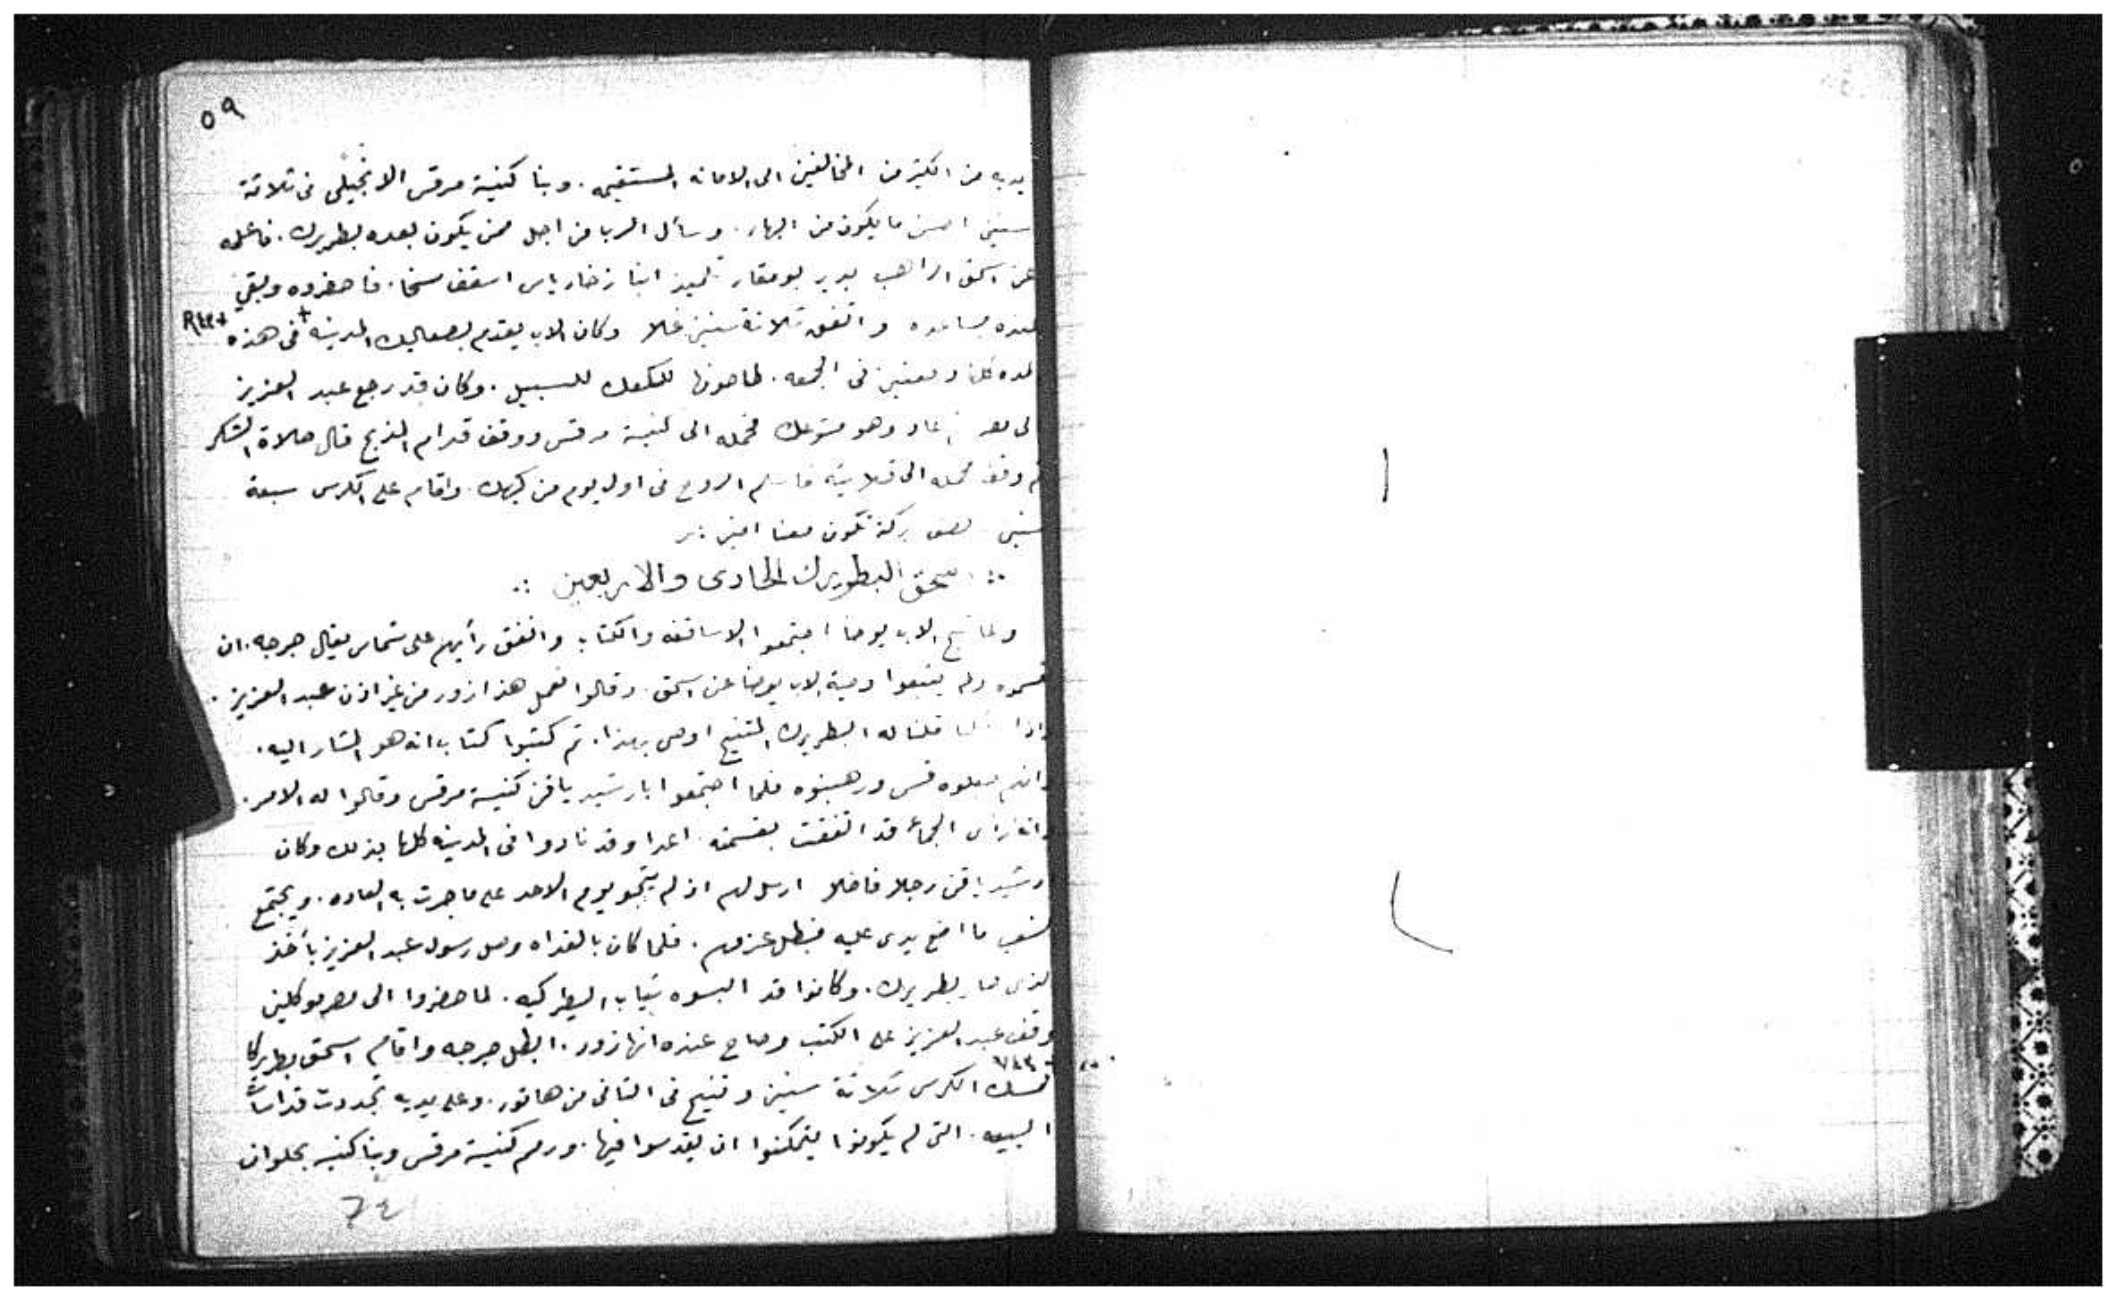 ٥٩
يديه من اكثر من المخالفين الى الامانه المستقيمه . وبنا كنيسة مرقس الانجيلى فى ثلاثة
سنين احسن ما يكون من البهاء . وسأل الرب من اجل من يكون بعده بطريرك . فاعلمه
عن اسحق الراهب بدير بومقار تلميذ انبا زخارياس اسقف سخا . فاحضروه وبقي
عنده يساعده و اتفق ثلاثة سنين غلا وكان الاب يقدم بصعاليك المدينه + فى هذه
المده كلها دفعتين فى الجمعه . طاحونها للكعك للسبيل . وكان قد رجع عبد العزيز
الى مصر فعاد وهو متوعك فحمله الى كنيسة مرقس ووقف قدام المذبح قال صلاة الشكر
ثم وقف فحمله الى قلايته فاسلم الروح فى اول يوم من كيهك . واقام على الكرسى سبعة
سنين ونصف بركته تكون معنا امين
∴ اسحق البطريرك الحادى والاربعين ∴
ولما تنيح الاب يوحنا اجتمعوا الاساقفه والكتاب واتفق رأيهم على شماس يقال جرجه . ان
يقسموه ولم يتبعوا وصية الاب يوحنا عن اسحق . وقالوا نعمل هذا زور من غير اذن عبد العزيز .
واذا قلنا له البطريرك المتنيح اوصى بهذا . ثم كتبوا كتاب انه هو المشار اليه .
وانهم جعلوه قس ورهبنوه فلما اجتمعوا بارشيدياقن كنيسة مرقس وقالوا له الامر .
وانه راى الجماعه قد اتفقت بقسمته . اعدا وقد نادوا فى المدينه كلها بذلك وكان
ارشيدياقن رجلا فاضلا ارسل لهم ان لم يتجو يوم الاحد على ما جرت به العاده . ويجتمع
الشعب ما اضع يدى عليه فبطل عزمهم . فلما كان بالغداه وصل رسول عبد العزيز يأخذ
الذى صار بطريرك . وكانوا قد البسوه ثياب البطركيه . لما حضروا الى مصر موكلين
وقف عبد العزيز على الكتب وصح عنده انها زور . ابطل جرجه واقام اسحق بطريركا
٧٤٣
فمسك الكرسى ثلاثة سنين وتنيح فى الثانى من هاتور . وعلى يديه تجددت قداسات
البيعه . التى لم يكونوا يتمكنوا ان يقدسوا فيها . ورمم كنيسة مرقس وبنا كنيسه بحلوان